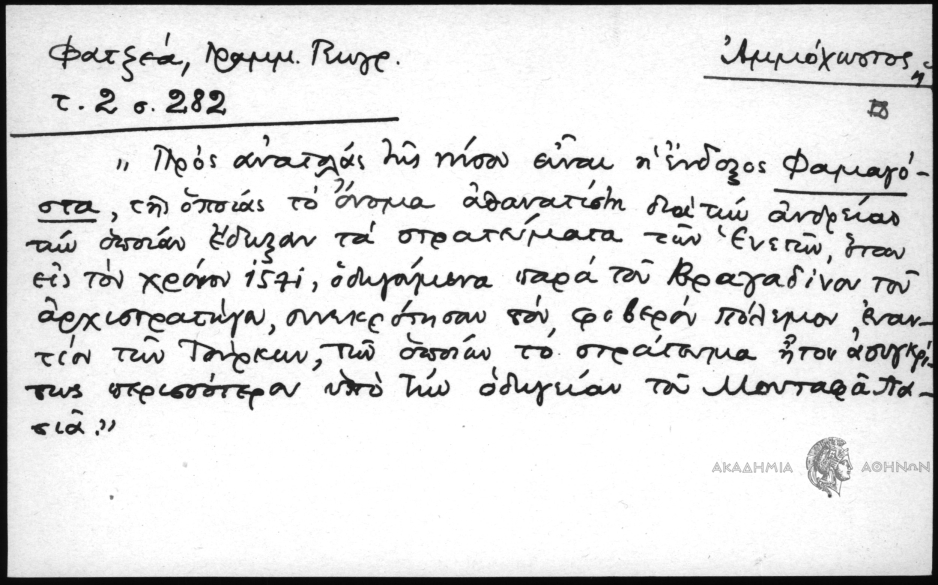 Φατζεά, Γραμμ. Γεωγρ.
Ἀμμόχωστος, ἡ
τ. 2 σ. 282
„ Πρὸς ἀνατολάς τῆς νήσου εἶναι ἡ ἔνδοξος Φαμαγό-
στα, τῆς ὁποίας τὸ ὄνομα ἀθανατίσθη διὰ τὴν ἀνδρείαν
τὴν ὁποίαν ἔδειξαν τὰ στρατεύματα τῶν Ἑνετῶν, ὅταν
εἰς τὸν χρόνον 1571, ὁδηγούμενα παρὰ τοῦ Βραγαδίνου τοῦ
ἀρχιστρατήγου, συνεκρότησαν τὸν φοβερὸν πόλεμον ἐναν-
τίον τῶν Τούρκων, τῶν ὁποίων τὸ στράτευμα ἦτον ἀσυγκρί-
τως περισσότερον ὑπὸ τὴν ὁδηγείαν τοῦ Μουσταφᾶ Πα-
σιᾶ.”
ΑΚΑΔΗΜΙΑ ΑΘΗΝΩΝ